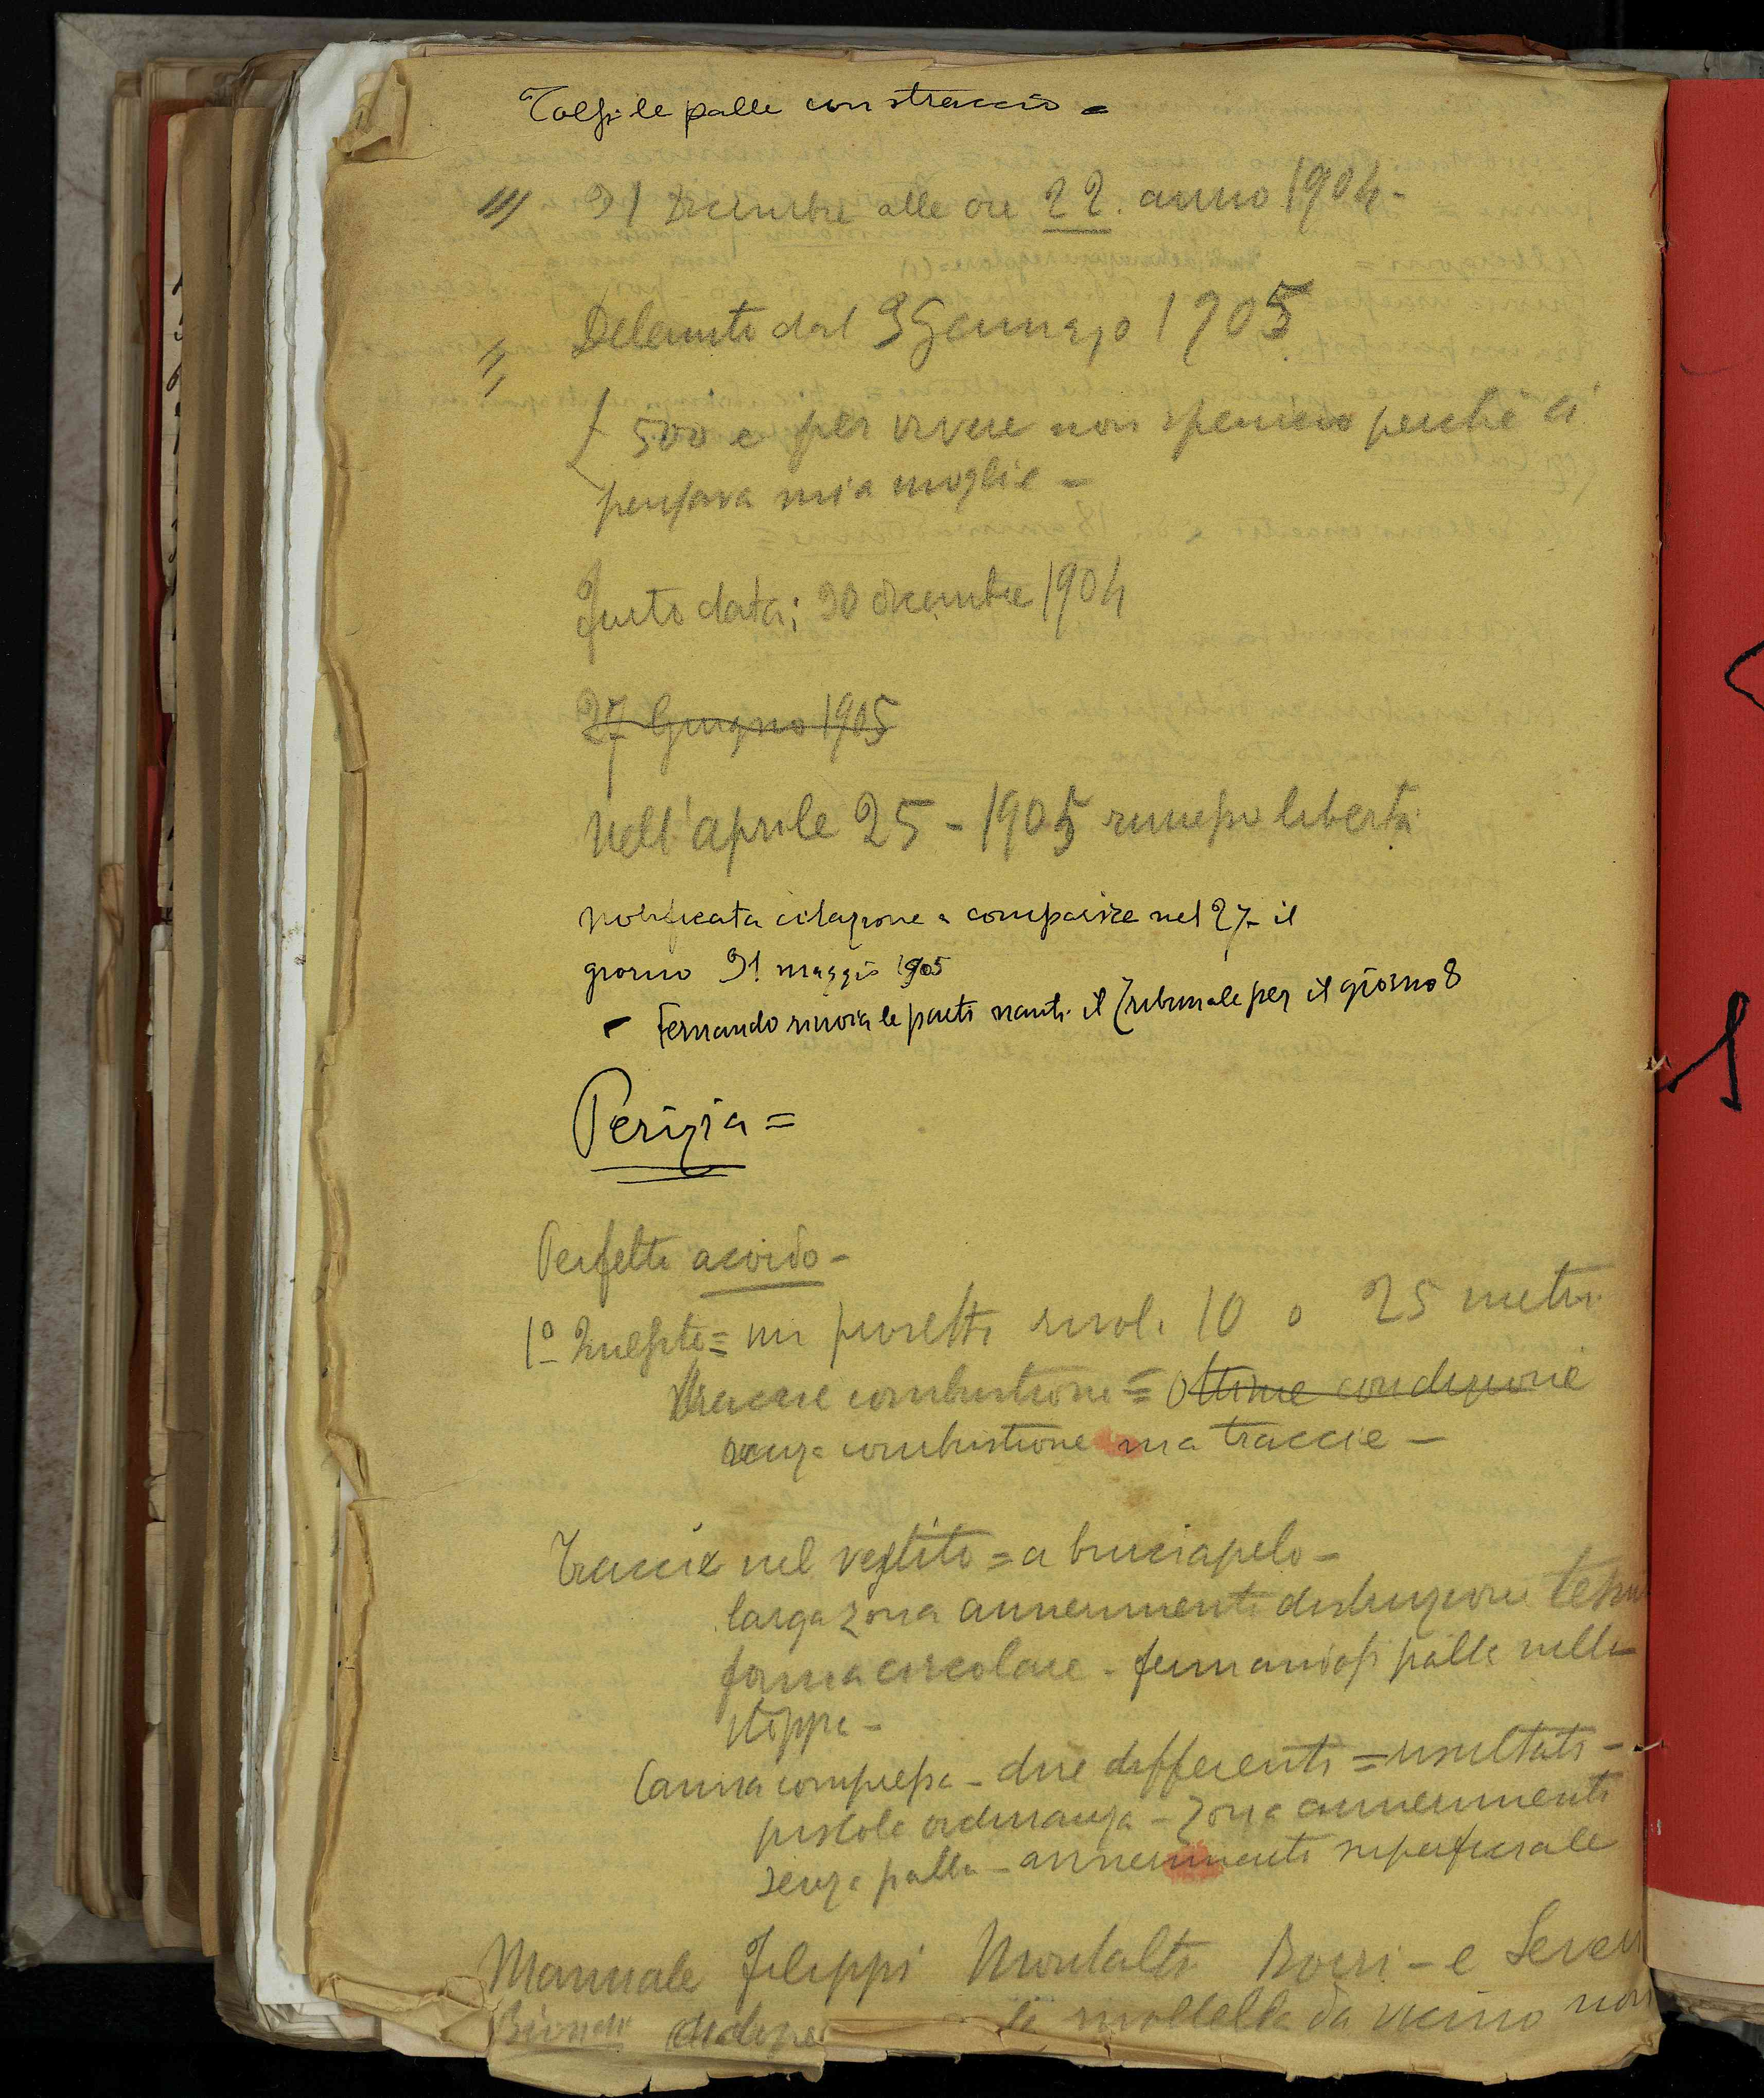 Tolsi le palle con straccio =
31 Dicembre alle ore 22. anno 1904 -
Detenuto dal 3 Gennajo 1905
500 e per vivere non spendevo perchè ci
pensava mia moglie -
Furto data: 30 dicembre 1904
27 Giugno 1905
Nell'aprile 25 - 1905 rimesso libertà
notificata citazione a comparire nel 27 il
giorno 31 maggio 1905
- Fernando rinvia le parti nanti il Tribunale per il giorno 8
Perizia =
Perfetto acordo -
1º Quesito = un proietti rivol. 10 o 25 metri
tracce combustione = Ottime condizione
senza combustione ma traccie -
Traccie nel vestito = a bruciapelo -
larga zona annerimento distruzione
forma circolare - fermandosi palla nella
stoppa -
Canna compressa - due differenti = risultati -
pistola ordinanza - zona annerimento
senza palla - annerimento superficiale
Manuale Filippi Montalti Borri - e
da vicino non